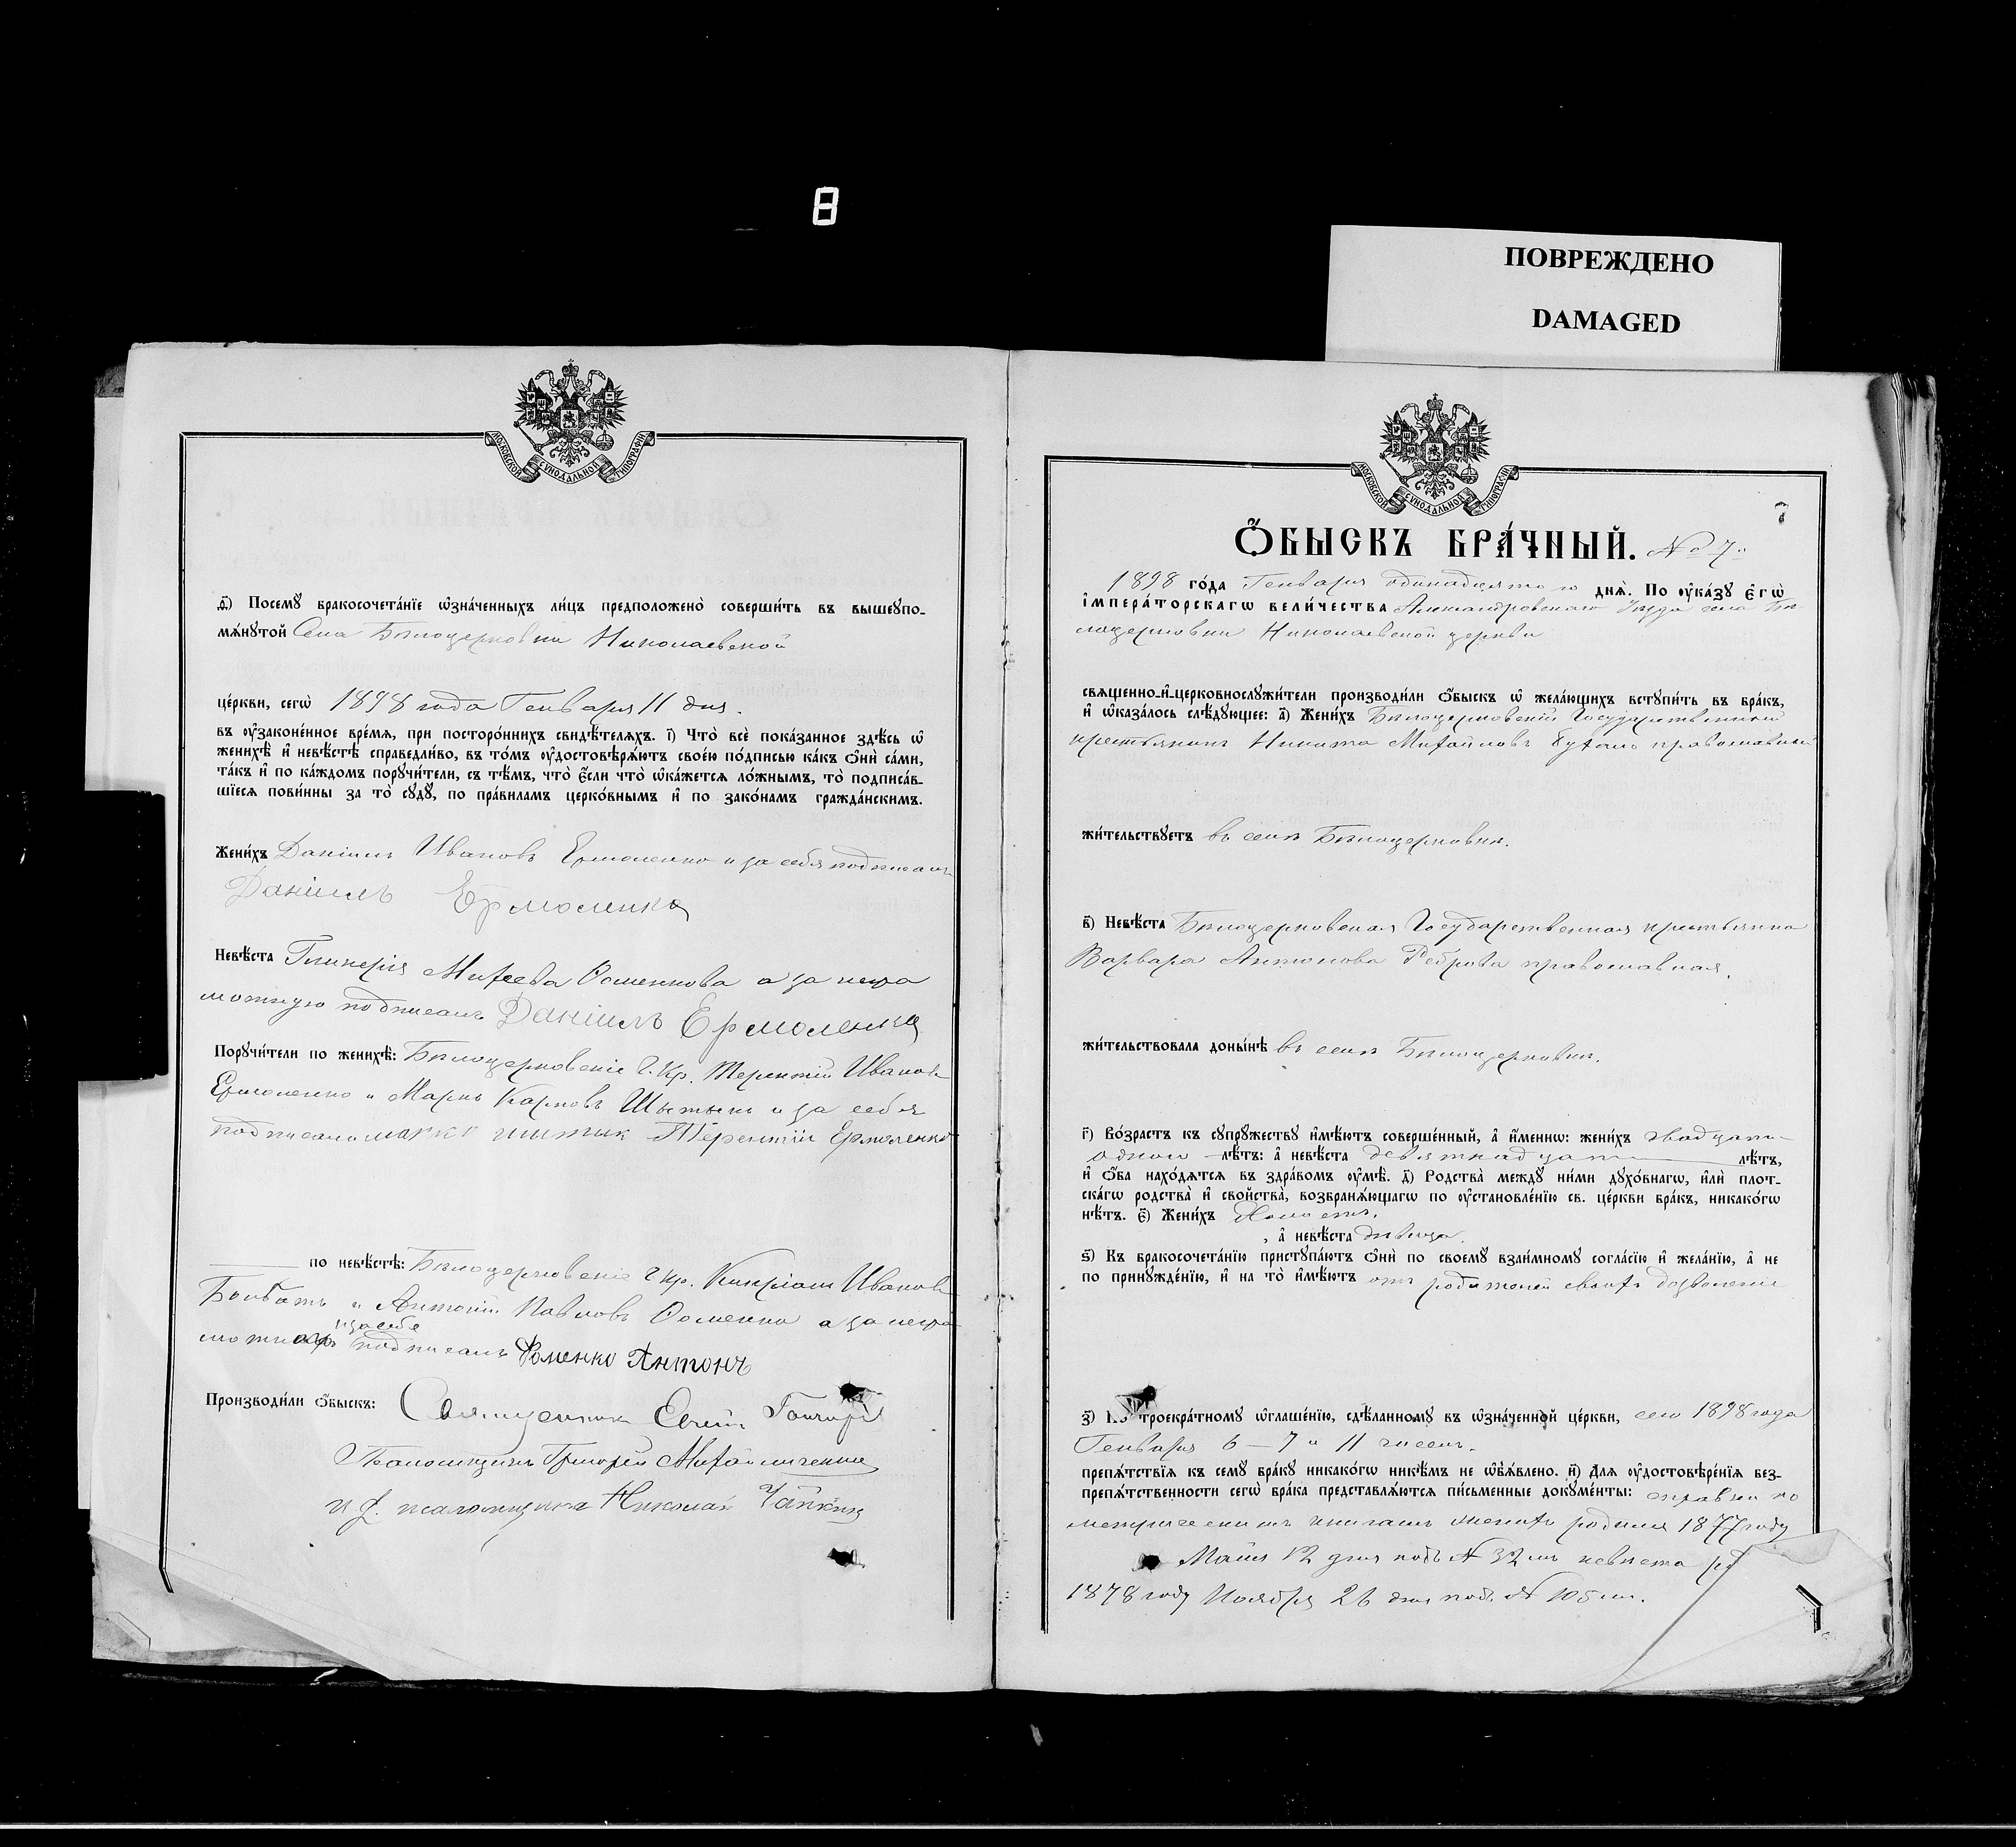 8
ПОВРЕЖДЕНО
DAMAGED
МОСКОВСКОЙ СУНОДАЛЬНОЙ ТИПОГРАФІИ
ѳ҃) Посемꙋ̀ бракосочета́нїе ѡ҆зна́ченныхъ ли́цъ предположено̀ соверши́ть въ вышеꙋпо-
мѧ́нꙋтой Села Бѣлоцерковки Николаевской
це́ркви, сегѡ̀ 1898 года Генваря 11 дня.
въ ѹ҆зако́ненное вре́мя, при посторо́ннихъ свидѣ́телѧхъ. і҃) Что̀ всѐ пока́занное здѣ́сь ѡ҆
женихѣ̀ и҆ невѣ́стѣ справедли́во, въ то́мъ ѹ҆достовѣрѧ́ютъ свое́ю по́дписью ка́къ ѻ҆нѝ са́ми,
та́къ и҆ по ка́ждомъ порꙋчи́тели, съ тѣ́мъ, что̀ є҆́сли что̀ ѡ҆ка́жется ло́жнымъ, то̀ подписа́в-
шїеся пови́нны за то̀ сꙋдꙋ̀, по пра́виламъ церко́внымъ и҆ по зако́намъ гражда́нскимъ.
Жени́хъ Даніилъ Ивановъ Ермоленко и за себя подписалъ
Даніилъ Ермоленко
Невѣ́ста Гликерія Михеева Фоменкова а за негра
мотную подписалъ Даніилъ Ермоленко
Порꙋчи́тели по женихѣ̀: Бѣлоцерковскіе г. кр. Терентій Иванов
Ермоленко и Марко Карповъ Шытык и за себя
подписали марко шитик Терентій Ермоленко
по невѣ́стѣ: Бѣлоцерковскіе г кр. Кипріан Иванов
и Антоній Павловъ Фоменко а за негра
и за себе
мотнаго подписалъ Фоменко Антонъ
Производи́ли ѻ҆́быскъ: Священник Гончар
Псаломщикъ Григорій Михайличенко
и. д. псаломщика Николай
МОСКОВСКОЙ СУНОДАЛЬНОЙ ТИПОГРАФІИ
7
Ѻ҆́БЫСКЪ БРА́ЧНЫЙ. № 7.
1898 го́да Генваря одинадцятого днѧ̀. По ѹ҆ка́зꙋ Є҆гѡ̀
І҆мпера́торскагѡ вели́чества Александровскаго уезда села Бѣ
лоцерковки Николаевской церкви
свѧще́нно-и҆-церковнослꙋжи́тели производи́ли ѻ҆́быскъ ѡ҆ жела́ющихъ встꙋпи́ть въ бра́къ,
и҆ ѡ҆каза́лось слѣ́дꙋющее: а҃) Жени́хъ Бѣлоцерковскій Государственный
крестьянин Никита Михайловъ православный
жи́тельствꙋетъ въ селѣ Бѣлоцерковки.
в҃) Невѣ́ста Бѣлоцерковская Государственная крестьянка
Варвара Антонова Реброва православная.
жи́тельствовала доны́нѣ въ селѣ Бѣлоцерковки.
г҃) Во́зрастъ къ сꙋпрꙋ́жествꙋ и҆мѣ́ютъ соверше́нный, а҆ и҆́меннѡ: жени́хъ двадцати-
одного лѣ́тъ: а҆ невѣ́ста девятнадцати лѣ́тъ,
и҆ ѻ҆́ба нахо́дѧтся въ здра́вомъ ѹ҆мѣ̀. д҃) Родства̀ междꙋ̀ ни́ми дꙋхо́внагѡ, и҆лѝ плот-
ска́гѡ родства̀ и҆ сво́йства̀, возбранѧ́ющагѡ по ѹ҆становле́нїю св. це́ркви бра́къ, никако́гѡ
нѣ́тъ. є҃) Жени́хъ Холостъ,
, а҆ невѣ́ста дѣвица.
ѕ҃) Къ бракосочета́нїю пристꙋпа́ютъ ѻ҆нѝ по своемꙋ̀ взаи́мномꙋ согла́сїю и҆ жела́нїю, а҆ не
по принꙋжде́нїю, и҆ на то̀ и҆мѣ́ютъ отъ родителей своихъ дозволеніе
з҃) По троекра́тномꙋ ѡ҆глаше́нїю, сдѣ́ланномꙋ въ ѡ҆зна́ченной це́ркви, сего 1898 года
Генваря 6 – 7 и 11 чиселъ.
препѧ́тствїя къ семꙋ̀ бра́кꙋ никако́гѡ никѣ́мъ не ѡ҆б̾ѧ́влено. и҃) Для ѹ҆достовѣре́нїя без-
препѧ́тственности сегѡ̀ бра́ка представлѧ́ются пи́сьменные докꙋме́нты: справки по
метрическимъ книгамъ женихъ родился 1877 году
Маія 12 дня подъ № 32мъ невѣста ро
1878 году Ноября 26 дня подъ № 105мъ.